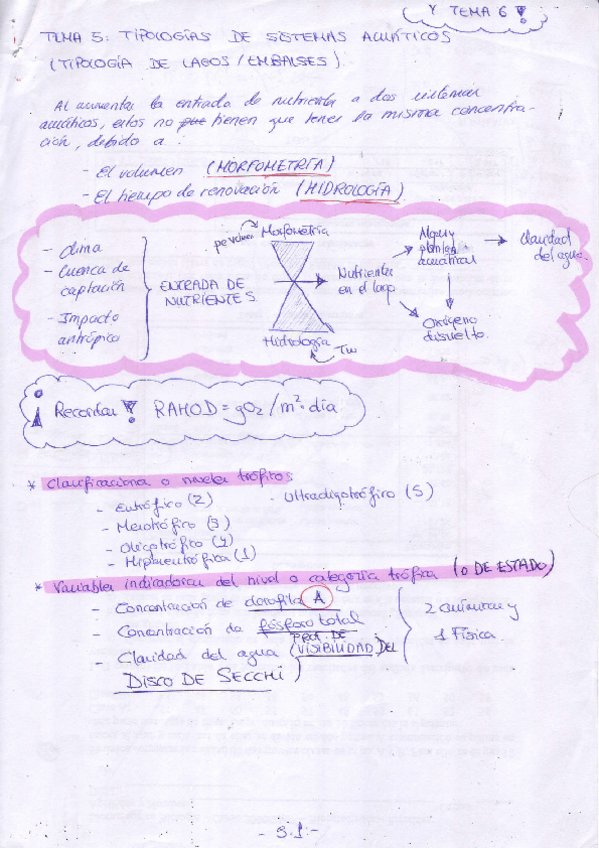 Y TEMA 6 !
TEMA 5: TIPOLOGÍAS DE SISTEMAS ACUÁTICOS
(TIPOLOGÍA DE LAGOS / EMBALSES)
Al aumentar la entrada de nutrientes a dos sistemas
acuáticos, estos no tienen que tener la misma concentra-
ción, debido a:
- El volumen (MORFOMETRÍA)
- El tiempo de renovación (HIDROLOGÍA)
- Clima
- Cuenca de
captación
- Impacto
antrópico
ENTRADA DE
NUTRIENTES
Morfometría
Hidrología
Tw
Nutrientes
en el lago
Algas y
plantas
acuáticas
Claridad
del agua
Oxígeno
disuelto
¡ Recordar ! RAHOD = gO2/m²·día
* Clasificaciones o niveles tróficos
- Eutrófico (2)
- Mesotrófico (3)
- Oligotrófico (4)
- Hipereutrófico (1)
- Ultraoligotrófico (5)
* Variables indicadoras del nivel o categoría trófica (O DE ESTADO)
- Concentración de clorofila A
- Concentración de fósforo total
- Claridad del agua (PROF. DE VISIBILIDAD DEL
DISCO DE SECCHI)
2 químicas y
1 Física.
- 5.1 -